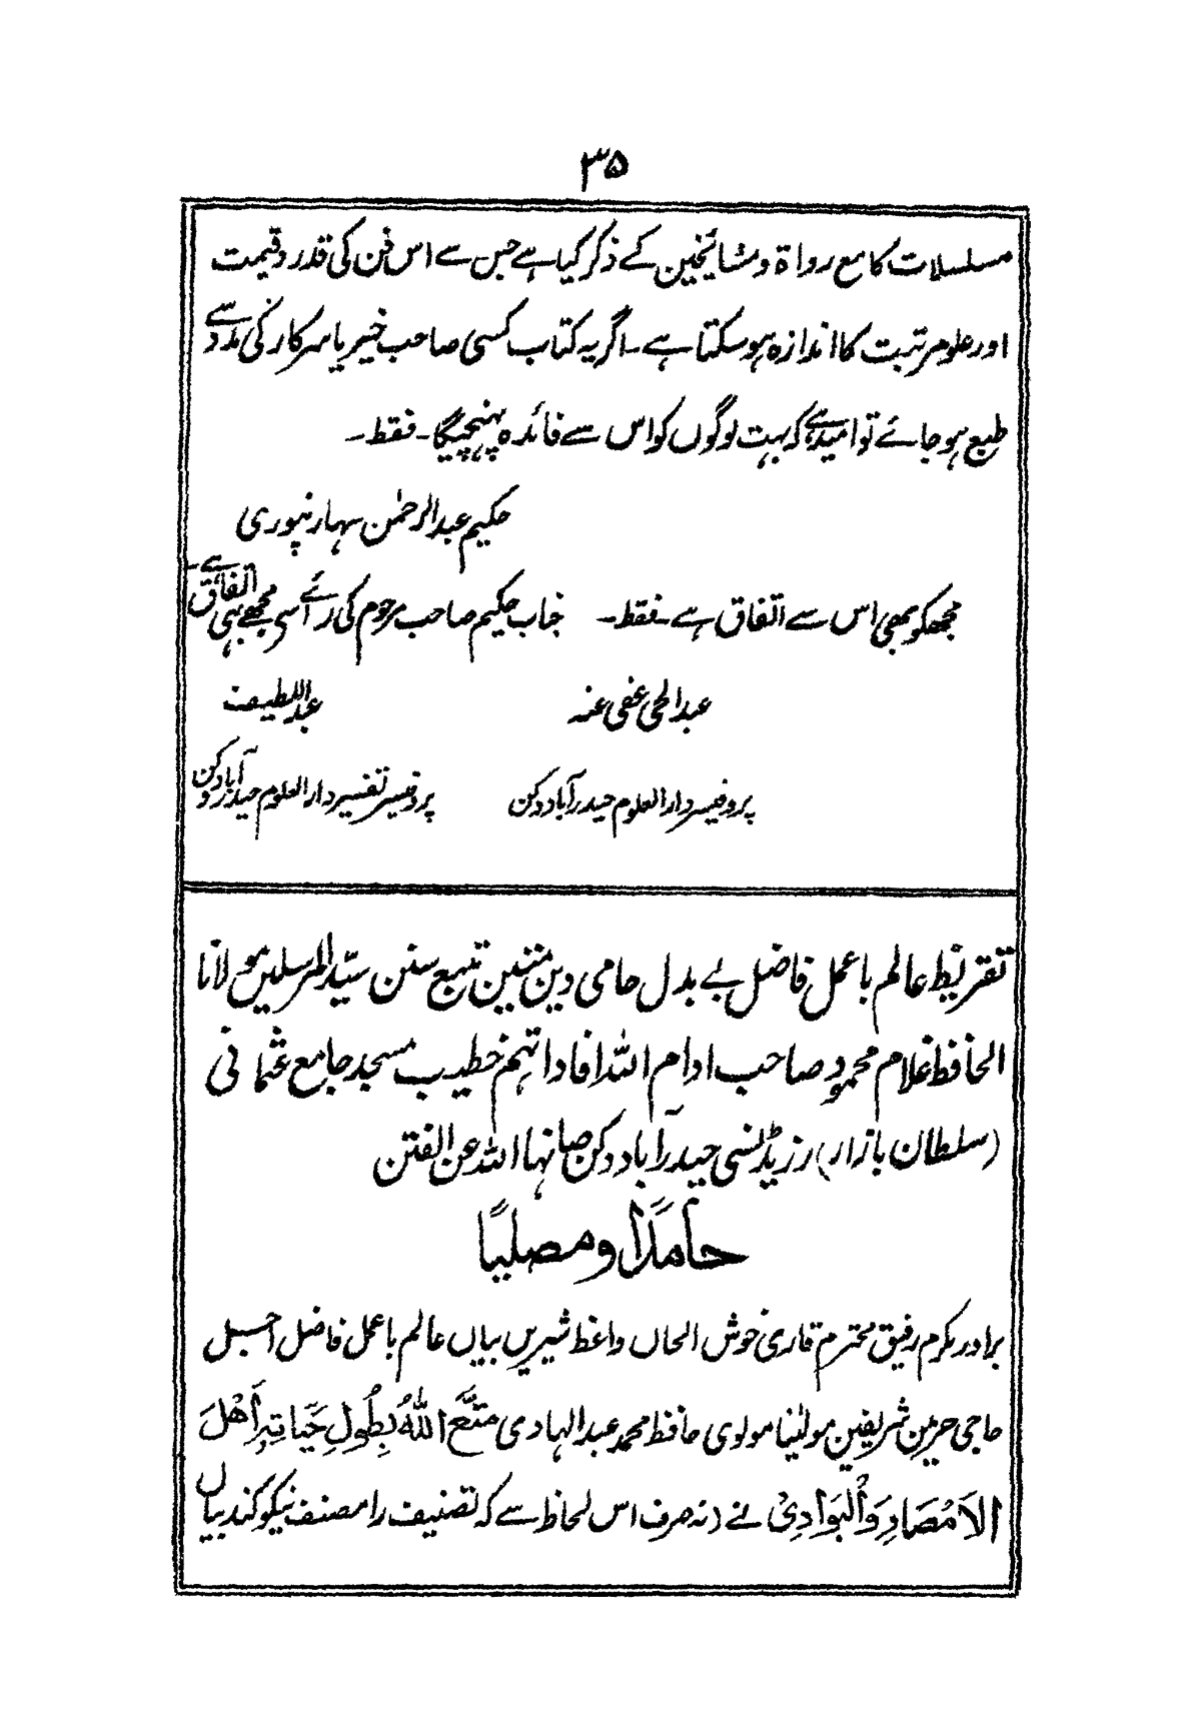 ۳۵
مسلسلات کا مع رواة و مشائخین کے ذکر کیا ہے جس سے اس فن کی قدر و قیمت
اور علو مرتبت کا اندازہ ہو سکتا ہے ۔ اگر یہ کتاب کسی صاحب خیر یا سرکار کی مدد سے
طبع ہو جائے تو امید ہے کہ بہت لوگوں کو اس سے فائدہ پہنچیگا ۔ فقط ۔
حکیم عبدالرحمٰن سہارنپوری
مجھکو بھی اس سے اتفاق ہے ۔ فقط ۔ جناب حکیم صاحب مرحوم کی رائے سے مجھے بھی اتفاق ہے ۔
عبدالحی عفی عنہ عبداللطیف
پروفیسر دارالعلوم حیدرآباد دکن پروفیسر تفسیر دارالعلوم حیدرآباد دکن
تقریظ عالم با عمل فاضل بے بدل حامی دین متین تتبع سنن سیّد المرسلین مولانا
الحافظ غلام محمود صاحب ادام اللہ افاداتہم خطیب مسجد جامع عثمانی
(سلطان بازار) رزیڈنسی حیدرآباد دکن صانہا اللہ عن الفتن
حامدًا و مصلیًا
برادر مکرم رفیق محترم قاری خوش الحاں واعظ شیریں بیاں عالم با عمل فاضل اجل
حاجی حرمین شریفین مولٰینا مولوی حافظ محمد عبدالہادی مَتَّعَ اللّٰهُ بِطُولِ حَيَاتِهٖ أَهْلَ
الْاَمْصَارِ وَالْبَوَادِیْ نے (نہ صرف اس لحاظ سے کہ تصنیف را مصنف نیکو کند بیاں